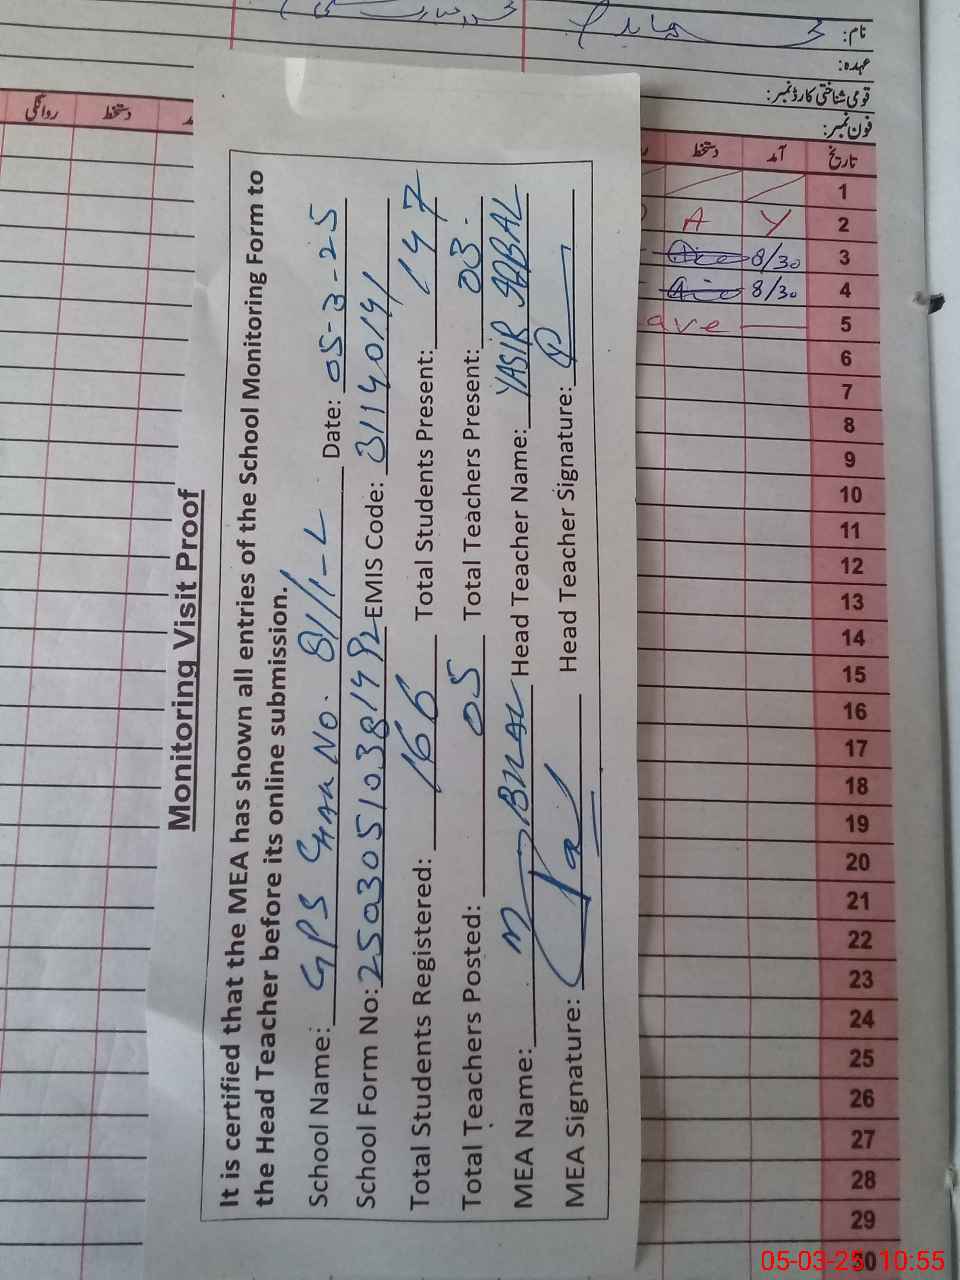 نام:
عہدہ:
قومی شناختی کارڈ نمبر:
فون نمبر:
تاریخ آمد دستخط
دستخط روانگی
1
2 Y A
3 8/30
4 8/30
5
6
7
8
9
10
11
12
13
14
15
16
17
18
19
20
21
22
23
24
25
26
27
28
29
30
Monitoring Visit Proof
It is certified that the MEA has shown all entries of the School Monitoring Form to
the Head Teacher before its online submission.
School Name: GPS Chak No. 81/1-L Date: 05-3-25
School Form No: 25030510381492 EMIS Code: 31140141
Total Students Registered: 166 Total Students Present: 147
Total Teachers Posted: 05 Total Teachers Present: 03
MEA Name: M BILAL Head Teacher Name: YASIR IQBAL
MEA Signature: Head Teacher Signature:
05-03-25 10:55